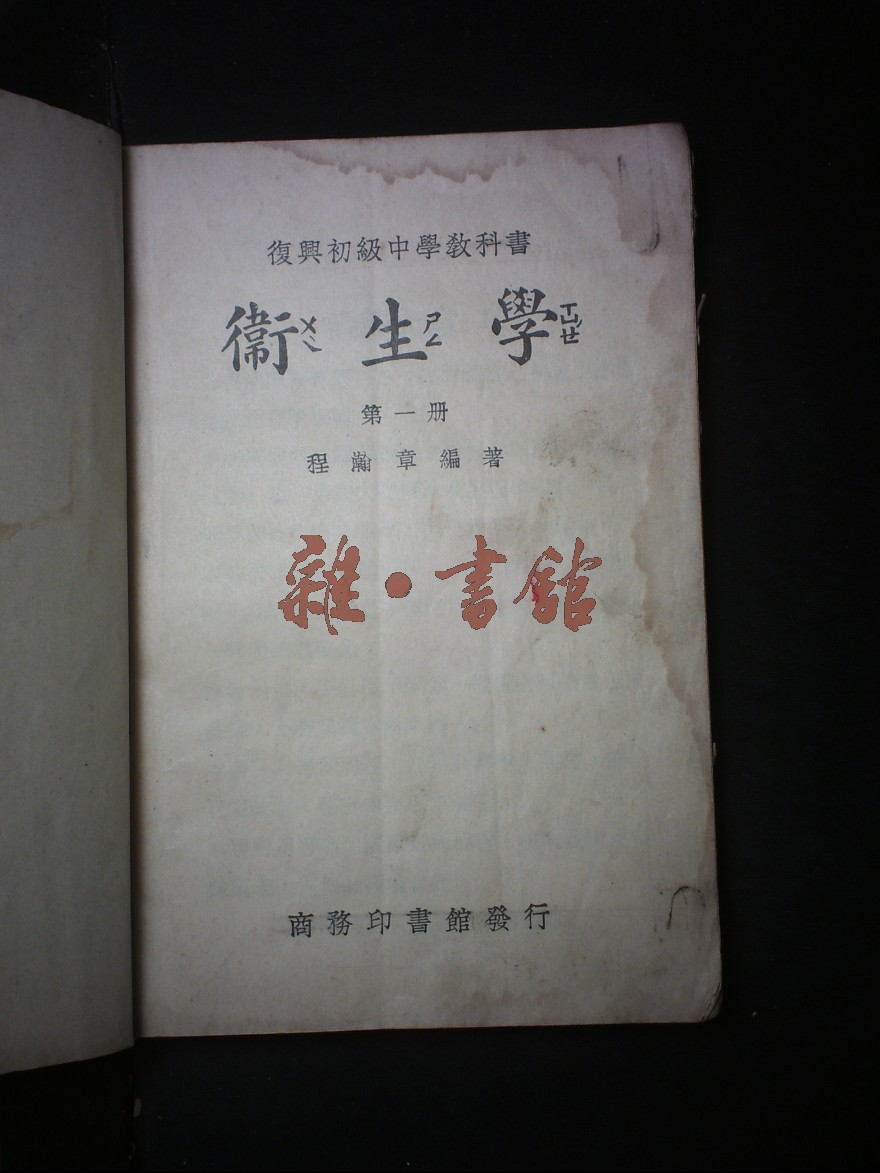 復興初級中學教科書
衞ㄨㄟ 生ㄕㄥ 學ㄒㄩㄝ
第一册
程瀚章編著
雜·書館
商務印書館發行